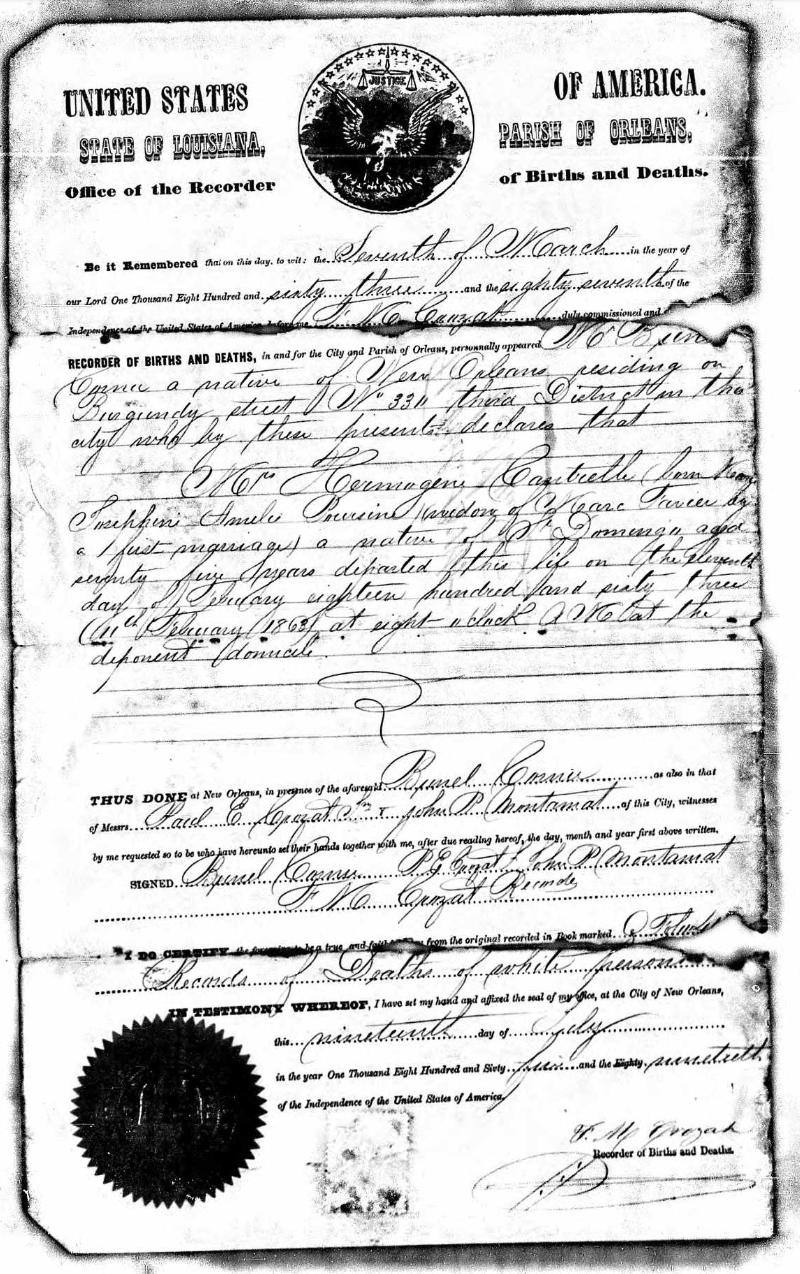 UNITED STATES OF AMERICA.
JUSTICE
STATE OF LOUISIANA, PARISH OF ORLEANS,
Office of the Recorder of Births and Deaths.
Be it Remembered that on this day, to wit: the Seventh of March in the year of
our Lord One Thousand Eight Hundred and sixty three and the eighty seventh of the
Independence of the United States of America, before me, F M Crozat duly commissioned and
RECORDER OF BIRTHS AND DEATHS, in and for the City and Parish of Orleans, personally appeared Mr
a native of New Orleans residing on
Burgundy street No 330 third District in this
city who by these presents declares that
Mrs Hermogene Cantrelle (born
Josephine Amelie Poursine widow of Marc by
a first marriage) a native of St Domingo aged
seventy five years departed this life on the eleventh
day of February eighteen hundred and sixty three
(11th February 1863) at eight o'clock A M at the
deponent domicile.
THUS DONE at New Orleans, in presence of the aforesaid as also in that
of Messrs Paul E Crozat & John P Montamat of this City, witnesses
by me requested so to be who have hereunto set their hands together with me, after due reading hereof, the day, month and year first above written.
SIGNED P E Crozat John P Montamat
F M Crozat Recorder
I DO CERTIFY the foregoing to be a true and from the original recorded in Book marked
Records of Deaths of white persons
IN TESTIMONY WHEREOF, I have set my hand and affixed the seal of my office, at the City of New Orleans,
this nineteenth day of July
in the year One Thousand Eight Hundred and Sixty and the Eighty ninetieth
of the Independence of the United States of America,
F. M. Crozat
Recorder of Births and Deaths.